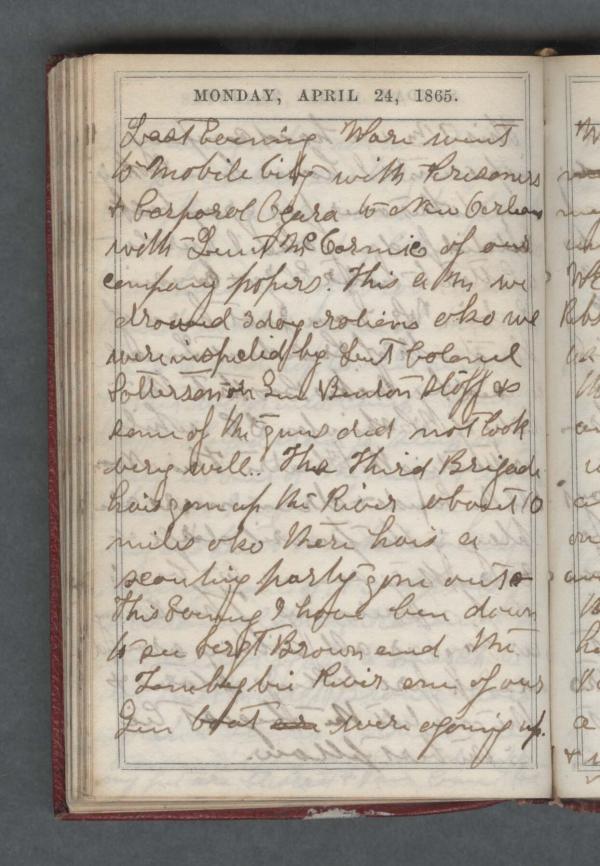 MONDAY, APRIL 24, 1865.
Last Evening Ware went
to Mobile City with Prisoners
& Corporol Ogara to New Orleans
with Leiut McCormic of our
company popers. This a m we
drawed 3 day rations olso we
were inspected by Leut Colonel
on Gen Benton Stoff &
som of the guns did not look
very well.. The Third Brigade
hais gon up the River obout 10
miles olso there hais a
scouting party gon out &
This Evening I have ben down
to see Sergt Brown and the
River one of our
Gun boat were agoing up.